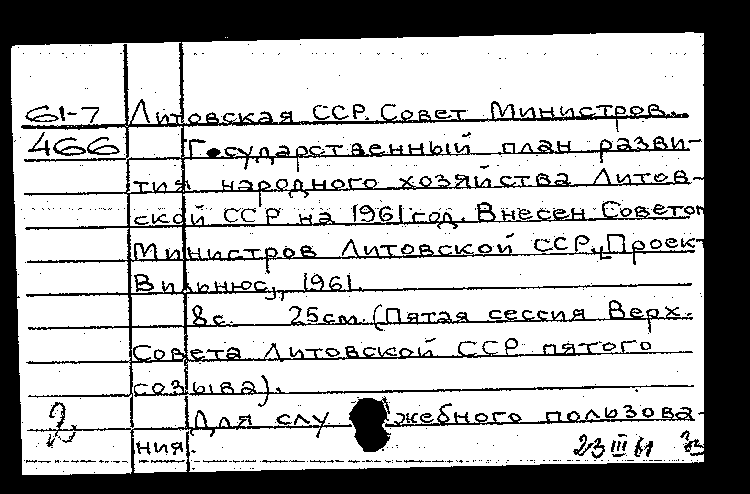 61-7 Литовская ССР. Совет Министров.
466 Государственный план разви-
тия народного хозяйства Литов-
ской ССР на 1961 год. Внесен Советом
Министров Литовской ССР. Проект
Вильнюс, 1961.
8с. 25см. (Пятая сессия Верх.
Совета Литовской ССР пятого
созыва).
2 Для служебного пользова-
ния.
23 III 61